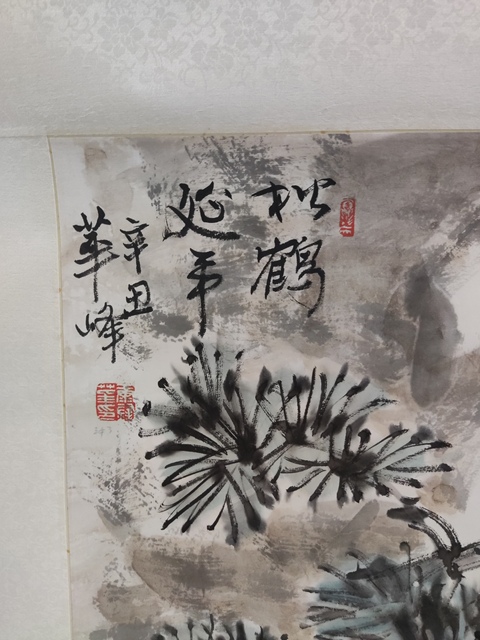 松鹤
延年
辛丑
華峰